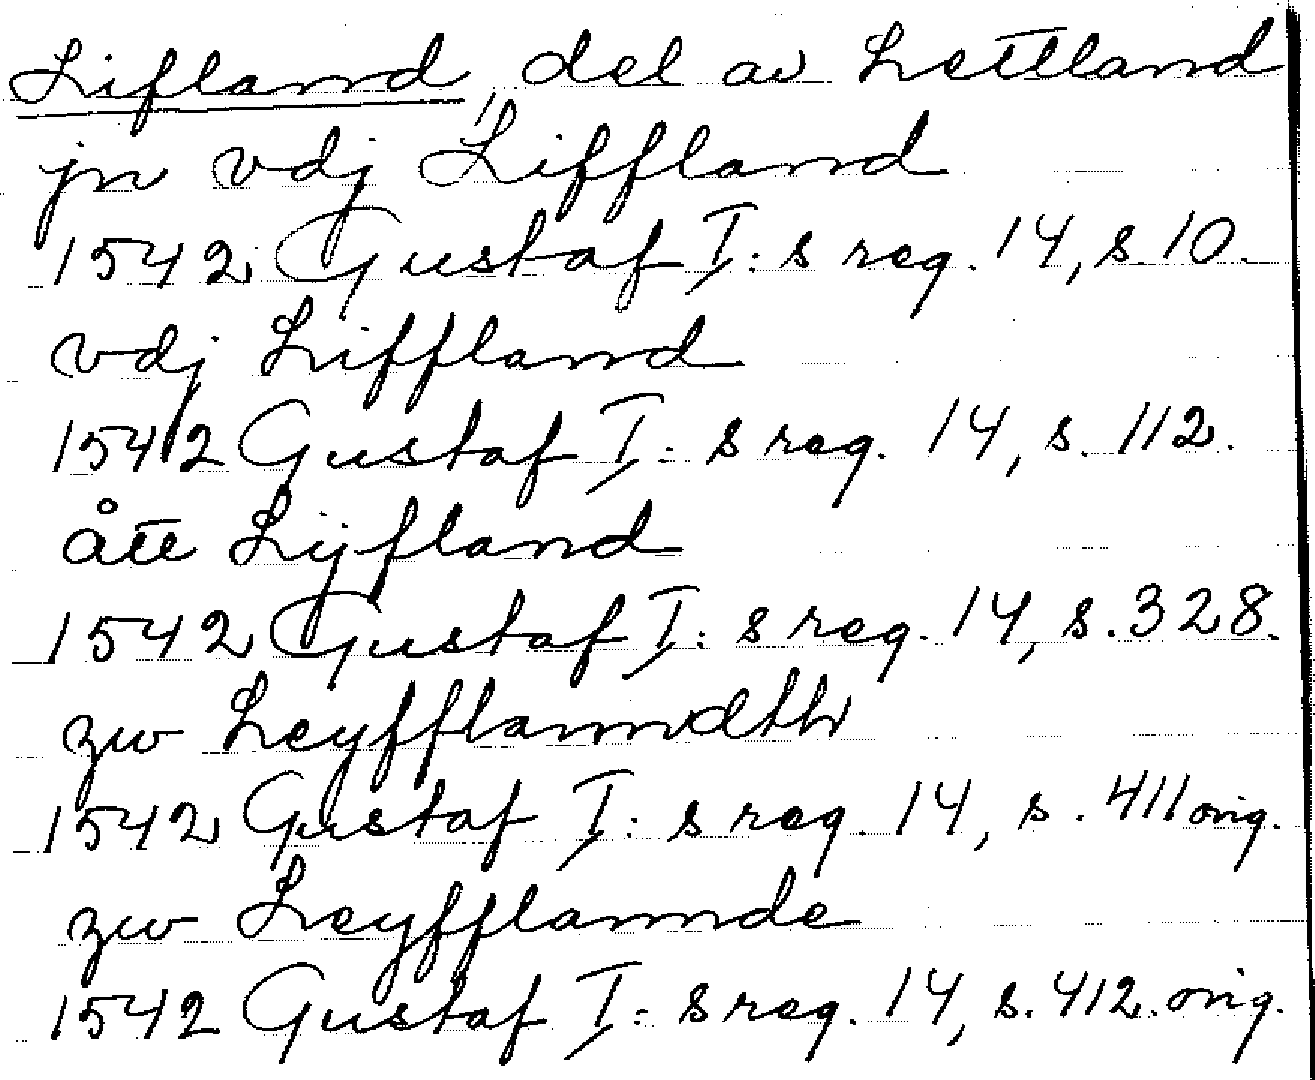 Lifland, del av Lettland
jn vdj Liffland
1542 Gustaf I:s reg. 14, s. 10.
vdj Liffland
1542 Gustaf I:s reg. 14, s. 112.
ått Lijfland
1542 Gustaf I:s reg. 14, s. 328.
zw Leyfflanndth
1542 Gustaf I:s reg. 14, s. 411 orig.
zw Leyfflannde
1542 Gustaf I:s reg. 14, s. 412. orig.